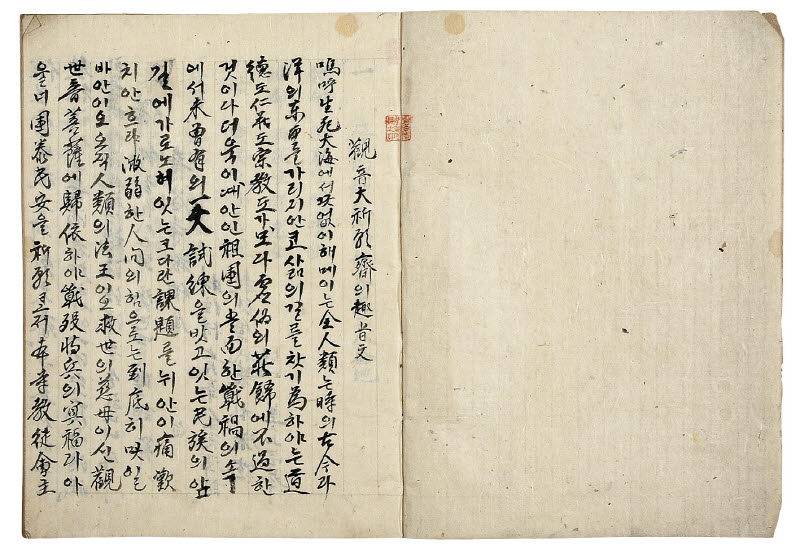 觀音大祈願齋의趣旨文
嗚呼生死大海에서끗없이헤메이는全人類는時의古今과
洋의東西를가리지안코삶의길를찻기爲하야는道
德도仁義도宗敎도가 다虛僞의莊飾에不過한
것이다더욱이때안인祖國의當面한戰禍의소
에서未曾有의一大試練을밧고잇는民族의앞
길에가로노혀잇는크다란課題를뉘안이痛歎
치안흐랴微弱한人間의힘으로는到底히밋일
바안이오오직人類의法王이오救世의慈母이신觀
世音菩薩에歸依하야戰歿將兵의冥福과아
울너國泰民安을祈願코저本寺敎徒會主